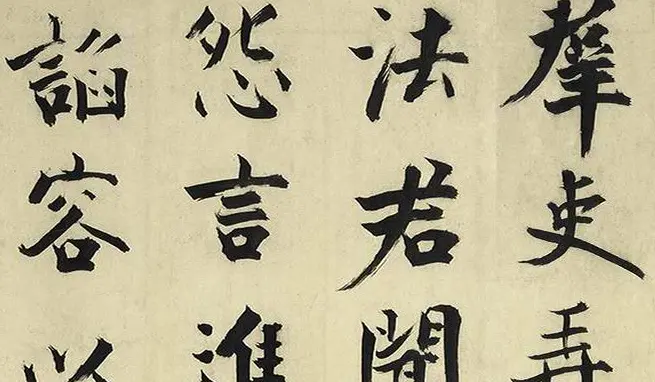 羣吏弄
法君聞
怨言進
諂容以